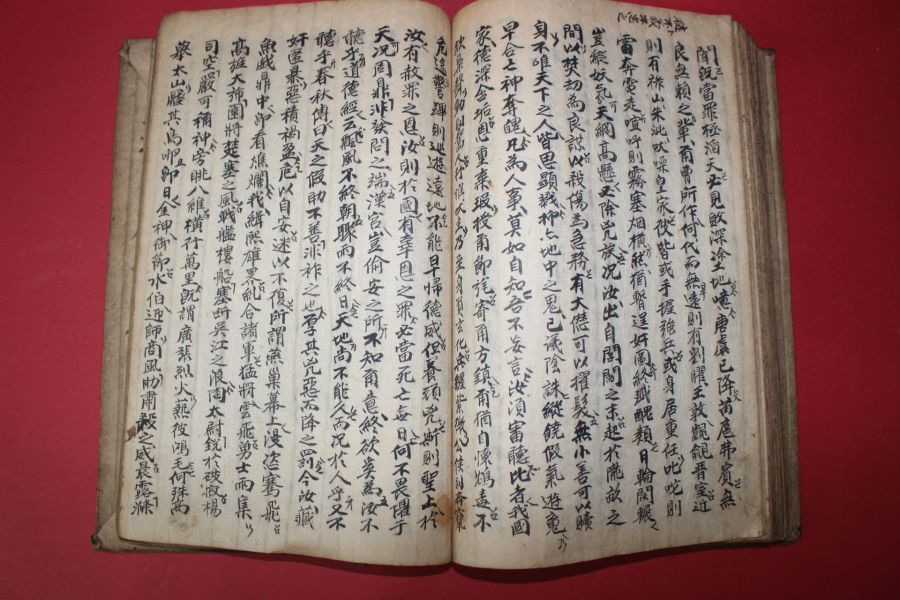 聞旣當罪極滔天必見敗深塗地噫唐虞已降苗扈弗賓無
良無賴之輩爾曹所作何代而無遠則有劉曜王敦覬覦晋室近
則有祿山朱泚吠噪皇家彼皆或手握強兵或身居重任叱咤則
雷奔電走喧呼則霧塞烟橫然猶暫逞奸圖終殲醜類日輪闊輾
豈縱妖氛天網高懸必除兇族况汝出自閭閻之末起於隴畝之
間以焚刼為良謀以殺傷為急務有大僽可以擢髮無小善可以贖
身不唯天下之人皆思顯戮抑亦地中之鬼已議陰誅縱饒假氣遊魂
早合亡神奪魄凡為人事莫如自知吾不妄言汝須審聽比者我國
家德深含垢恩重棄瑕授爾節旄寄爾方鎮爾猶自懷鴆毒不
斂梟聲動則嚙人行唯吠主乃至身負玄化兵纏紫微公侯則奔竄
危途警蹕則巡遊遠地不能早歸德威但養頑兇斯則聖上於
汝有赦罪之恩汝則於國有辜恩之罪必當死亡無日何不畏懼于
天况周鼎非發問之端漢宮豈偷安之所不知爾意終欲奚為汝不
聽乎道德經云飄風不終朝驟雨不終日天地尚不能久而况於人乎又不
聽乎春秋傳曰天之假助不善非祚之也厚其凶惡而降之罰今汝藏
奸匿暴惡積禍盈危以自安迷以不復所謂燕巢幕上漫恣騫飛
魚戲鼎中卽看燋爛我緝熙雄畧糺合諸軍猛將雲飛勇士雨集
高旌大旆圍將楚塞之風戰艦樓船塞斷吳江之浪陶太尉銳於破敵楊
司空嚴可稱神旁眺八維橫行萬里旣謂廣張烈火爇彼鴻毛何殊高
擧太山壓其鳥卵卽日金神御節水伯迎師商風助肅殺之威晨露滌